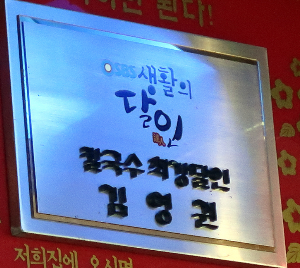 이인 된다!
SBS 생활의
달인
칼국수 최강달인
김영권
저희집에 오시면